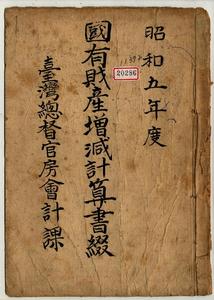 昭和五年度
國有財産增減計算書綴
臺灣總督官房會計課
20286